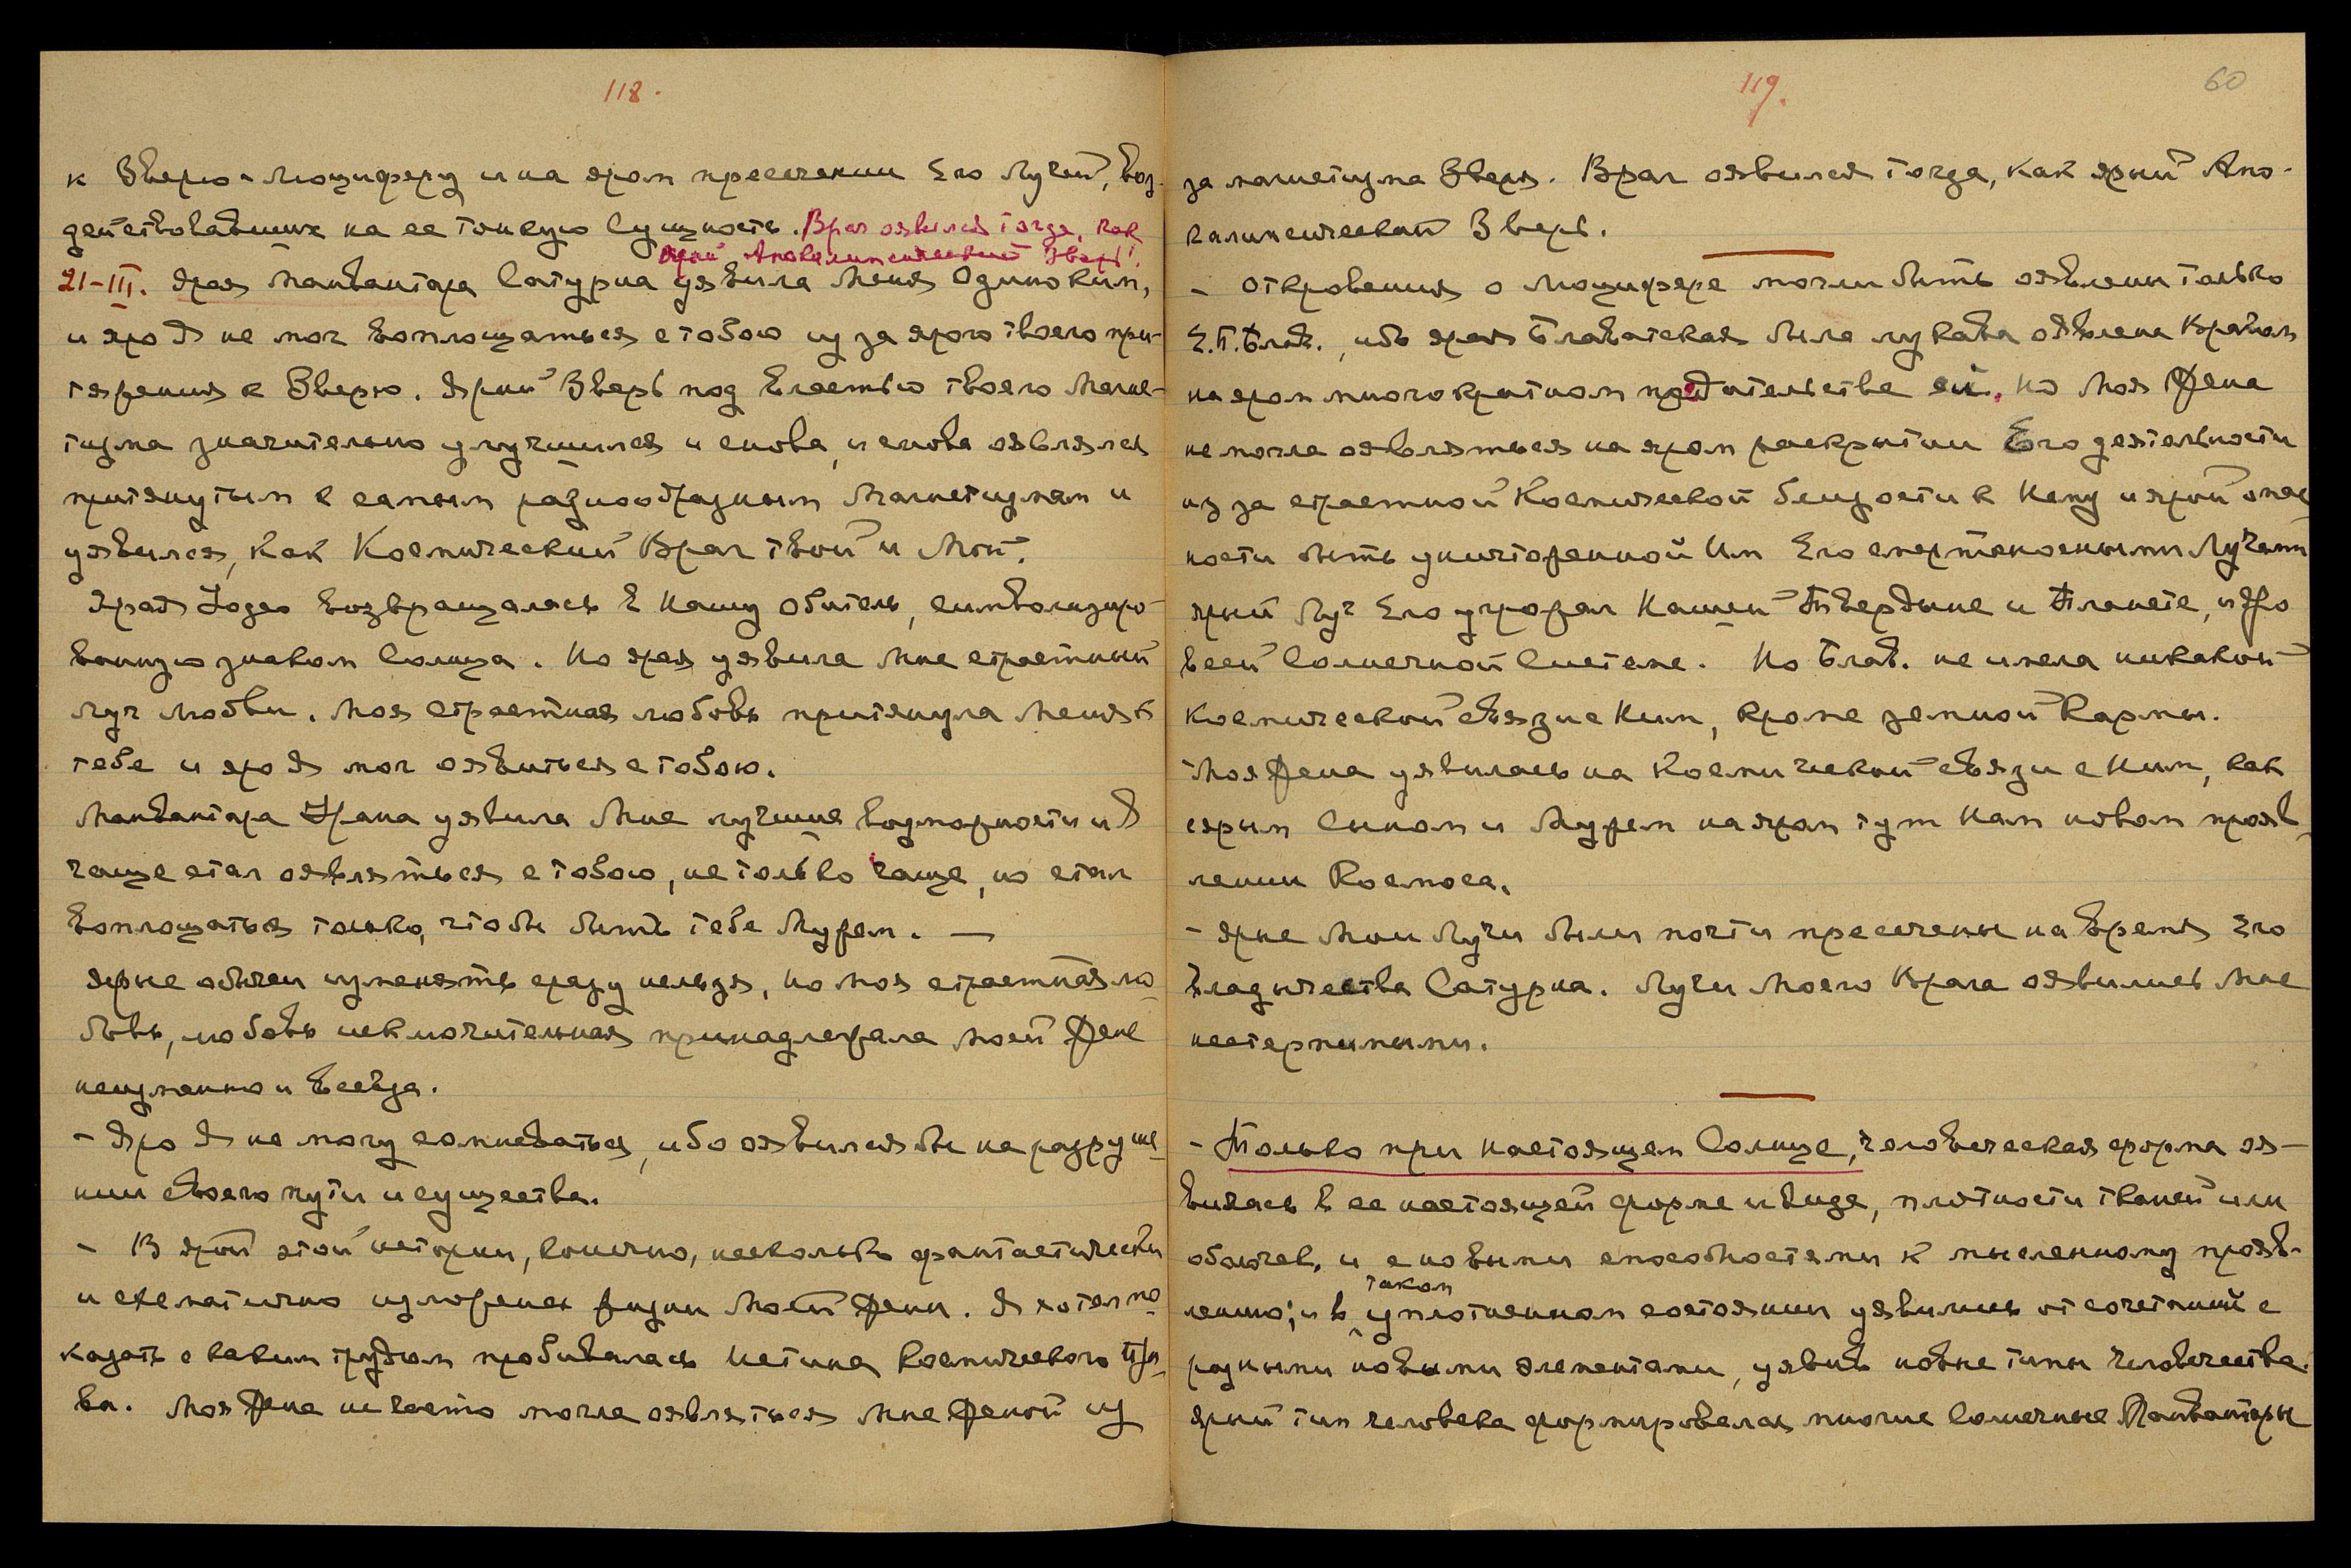 118.
к Зверю-Люциферу и на яром пресечении Его Лучей, воз-
действовавших на ее тонкую Сущность. Враг оявился тогда, как
ярый Апокалипсический Зверь.
21-III. Ярая Манвантара Сатурна уявила Меня Одиноким,
и яро Я не мог воплощаться с тобою из за ярого твоего при-
тяжения к Зверю. Ярый Зверь под властью твоего Магне-
тизма значительно улучшился и снова, и снова оявлялся
притянутым к самым разнообразным Магнетизмам и
уявился, как Космический Враг твой и Мой.
Ярая возвращалась в Нашу Обитель, символизиро-
ванную знаком Солнца. Но ярая уявила Мне страстный
луч любви. Моя страстная любовь притянула Меня к
тебе и яро Я мог оявиться с тобою.
Манвантара Урана уявила Мне лучшие возможности и Я
чаще стал оявляться с тобою, не только чаще, но стал
воплощаться только, чтобы быть тебе Мужем. —
Ярые обычаи изменять сразу нельзя, но моя страстная лю-
бовь, любовь исключительная принадлежала моей Жене
неизменно и всегда.
- Яро Я не могу сомневаться, ибо оявился бы на разруше-
нии своего пути и существа.
- В ярой этой истории, конечно, несколько фантастически
и схематично изложена жизни Моей Жены. Я хотел по-
казать с каким трудом пробивалась Истина Космического Пра-
ва. Моя Жена не часто могла оявляться Мне Женой из
119.
60
за магнетизма Зверя. Враг оявился тогда, как ярый Апо-
калипсический Зверь.
- Откровения о Люцифере могли быть оявлены только
Е.П.Блав., ибо ярая Блаватская была лукава оявлена Врагом
на яром многократном предательстве ей. Но Моя Жена
не могла оявляться на яром раскрытии Его деятельности
из за страстной Космической близости к Нему и ярой опас-
ности быть уничтоженной Им Его смертоносными Лучами
ярый Луч Его угрожал Нашей Твердыне и Планете, и яро
всей Солнечной Системе. Но Блав. не имела никакой
космической связи с Ним, кроме земной Кармы.
Моя Жена уявилась на Космической связи с Ним, как
с ярым Сыном и Мужем на яром тут Нам новом прояв-
лении Космоса.
- Ярые Мои Лучи были почти пресечены на время Его
владычества Сатурна. Лучи Моего Врага оявились Мне
нестерпимыми.
- Только при настоящем Солнце, человеческая форма оя-
вилась в ее настоящей форме и виде, плотности тканей или
оболочек, и с новыми способностями к мысленному прояв-
лению; и в таком уплотненном состоянии уявились от сочетаний с
разными новыми элементами, уявив новые типы человечества.
Ярый тип человека формировался многие Солнечные Манвантары